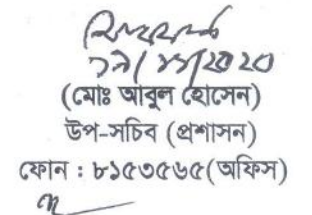 ১৯/১১/২০২০
(মোঃ আবুল হোসেন)
উপ-সচিব (প্রশাসন)
ফোন : ৮১৫৩৫৬৫(অফিস)